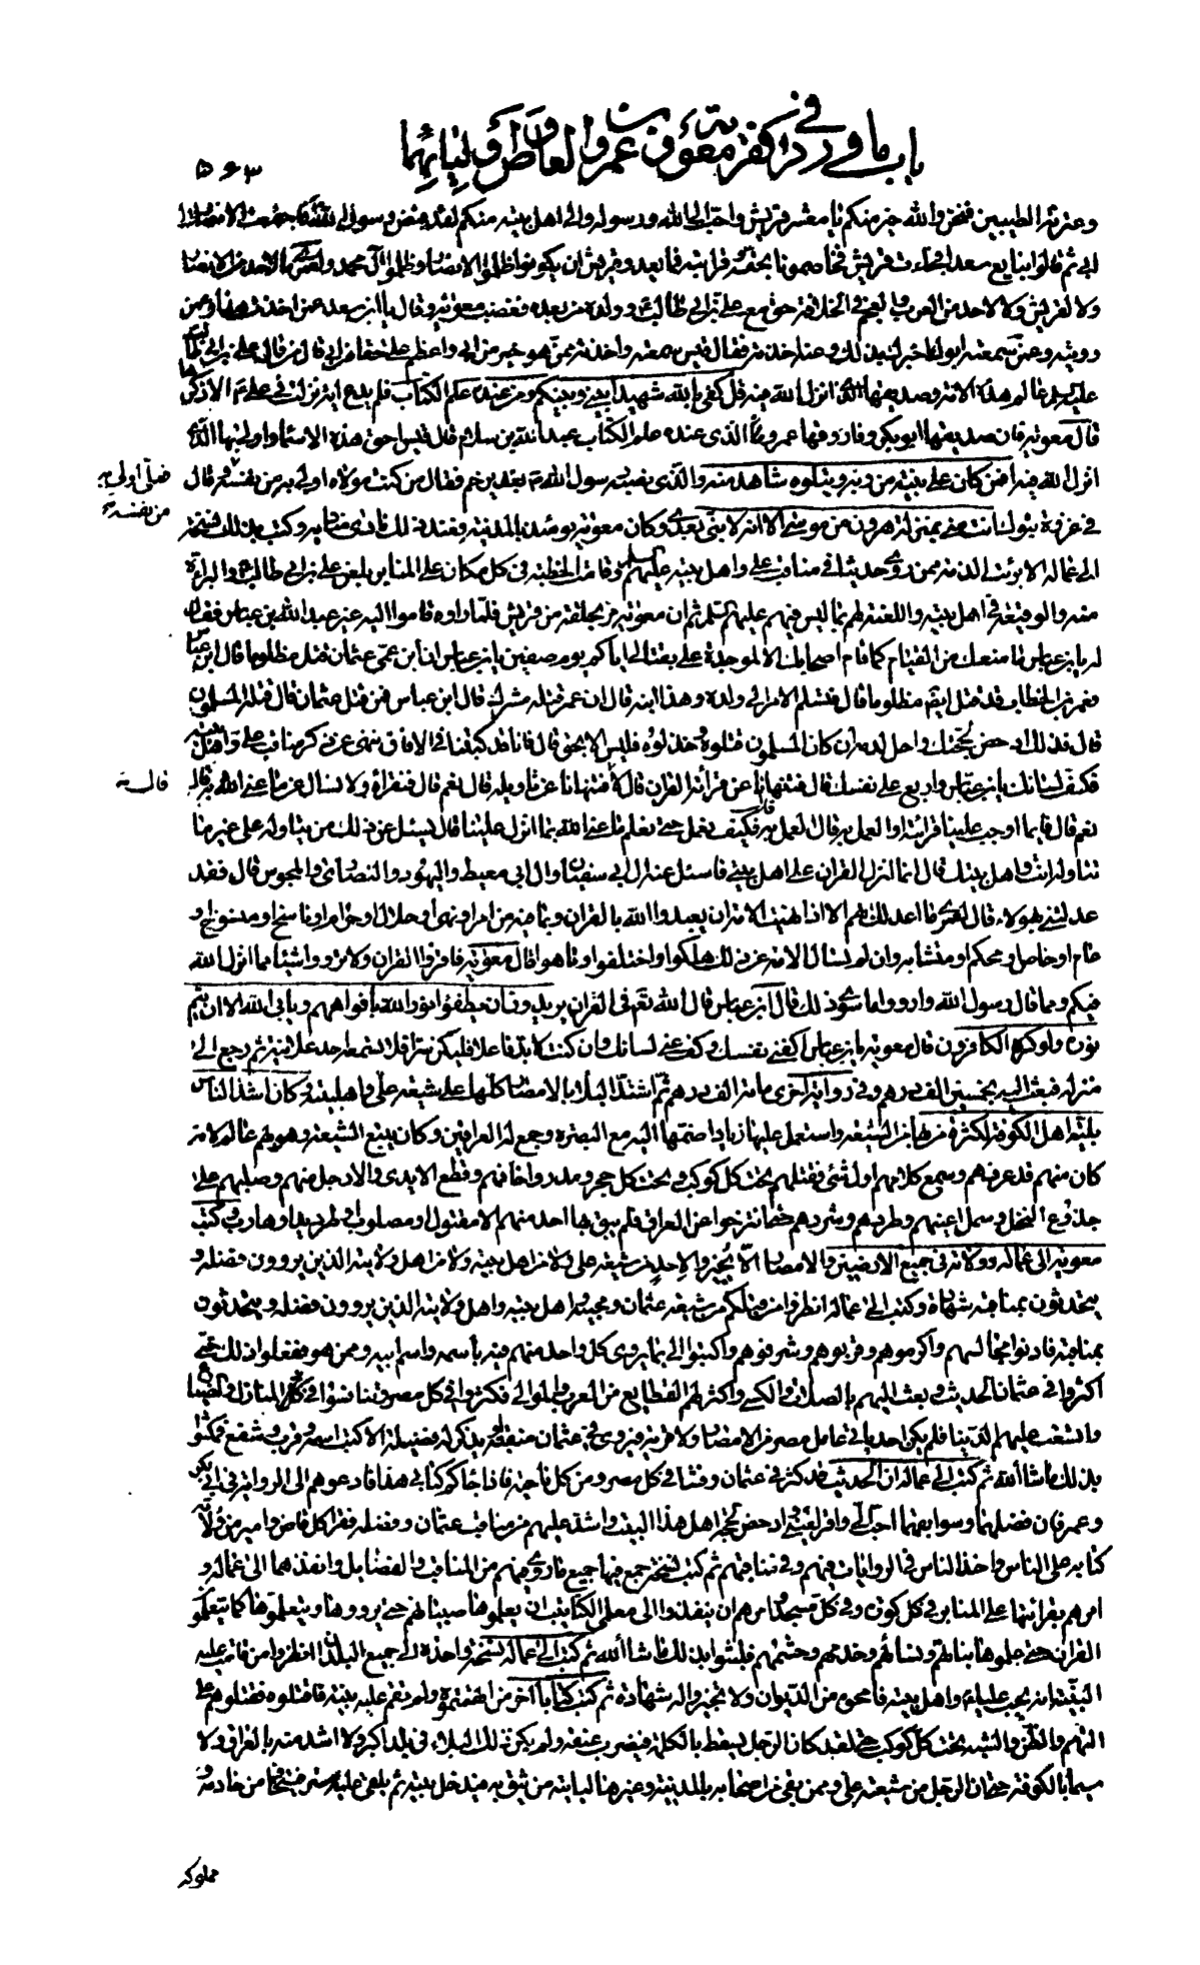 باب ما ورد في كفر معوية وعمرو بن العاص وأوليائهما
٥٦٣
وعترته الطيبين فنحن والله خير منكم يا معشر قريش واحب الى الله ورسوله والى اهل بيته منكم لقد قبض رسول الله فاجتمعت الانصار الى
ابي ثم قالوا نبايع سعدا فجاءت قريش فخاصمونا بحقه وقرابته فما يعدو قريش ان يكونوا ظلموا الانصار وظلموا آل محمد ولعمري ما لاحد من الانصار
ولا لقريش ولا لاحد من العرب والعجم في الخلافة حق مع علي بن ابي طالب وولده من بعده فغضب معوية وقال يا ابن سعد عمن اخذت هذا وعمن
رويته وعمن سمعته ابوك اخبرك بذلك وعنه اخذته فقال قيس سمعته واخذته ممن هو خير من ابي واعظم علي حقا من ابي قال من قال علي بن ابي طالب
عالم هذه الامة وصديقها الذي انزل الله فيه قل كفى بالله شهيدا بيني وبينكم ومن عنده علم الكتاب فلم يدع اية نزلت في علي الا ذكرها
قال معوية فان صديقها ابو بكر وفاروقها عمر والذي عنده علم الكتاب عبد الله بن سلام قال قيس احق هذه الاسماء واولى بها الذي
انزل الله فيه افمن كان على بينة من ربه ويتلوه شاهد منه والذي نصبه رسول الله بغدير خم فقال من كنت مولاه اولى به من نفسه وقال
فعلي اولى به
من نفسه
في غزوة تبوك انت مني بمنزلة هرون من موسى الا انه لا نبي بعدي وكان معوية يومئذ بالمدينة فعند ذلك نادى مناديه وكتب بذلك نسخة
الى عماله الا برئت الذمة ممن روى حديثا في مناقب علي واهل بيته وقامت الخطبة في كل مكان على المنابر بلعن علي بن ابي طالب والبراءة
منه والوقيعة في اهل بيته واللعنة لهم بما ليس فيهم ثم ان معوية مر بحلقة من قريش فلما راوه قاموا اليه غير عبد الله بن عباس فقال
له يا ابن عباس ما منعك من القيام كما قام اصحابك الا لموجدة علي بقتالي اياكم يوم صفين يا ابن عباس ان ابن عمي عثمان قتل مظلوما قال ابن عباس
فعمر بن الخطاب قد قتل مظلوما قال فتسلم الامر الى ولده وهذا ابنه قال ان عمر قتله مشرك قال ابن عباس فمن قتل عثمان قال قتله المسلمون
قال فذلك ادحض لحجتك واحل لدمه ان كان المسلمون قتلوه وخذلوه فليس الا بحق قال فانا قد كتبنا في الافاق ننهى عن ذكر مناقب علي واهل بيته
فكف لسانك يا ابن عباس واربع على نفسك قال فتنهانا عن قرائة القران قال لا قال افتنهانا عن تاويله قال نعم قال فنقراه ولا نسال عن ما عنى الله به قال
قال
نعم قال فايما اوجب علينا قرائته او العمل به قال العمل به قال فكيف نعمل حتى نعلم ما عنى الله بما انزل علينا قال يسئل عن ذلك من يتاوله على غير ما
تتاوله انت واهل بيتك قال انما انزل القران على اهل بيتي فاسئل عنه ال ابي سفيان وال ابي معيط واليهود والنصارى والمجوس قال فقد
عدلتني بهولاء قال لعمري ما اعدلك بهم الا اذا نهيت الامة ان يعبدوا الله بالقران وبما فيه من امر او نهي او حلال او حرام او ناسخ او منسوخ او
عام او خاص او محكم او متشابه وان لم تسال الامة عن ذلك هلكوا واختلفوا وتاهوا قال معوية فاقرؤا القران ولا ترووا شيئا مما انزل الله
فيكم ومما قال رسول الله وارووا ما سوى ذلك قال ابن عباس قال الله في القران يريدون ان يطفئوا نور الله بافواههم ويابى الله الا ان يتم
نوره ولو كره الكافرون قال معوية يا ابن عباس اكفني نفسك وكف عني لسانك وان كنت لا بد فاعلا فليكن سرا فلا تسمعه احدا علانية ثم رجع الى
منزله فبعث اليه بخمسين الف درهم وفي رواية اخرى مائة الف درهم ثم اشتد البلاء بالامصار كلها على شيعة علي واهل بيته وكان اشد الناس
بلية اهل الكوفة لكثرة من بها من الشيعة واستعمل عليها زيادا ضمها اليه مع البصرة وجمع له العراقين وكان يتبع الشيعة وهو بهم عالم لانه
كان منهم قد عرفهم وسمع كلامهم اول شئ فقتلهم تحت كل كوكب وتحت كل حجر ومدر واخافهم وقطع الايدي والارجل منهم وصلبهم على
جذوع النخل وسمل اعينهم وطردهم وشردهم حتى انتزحوا عن العراق فلم يبق بها احد منهم الا مقتول او مصلوب او طريد او هارب وكتب
معوية الى عماله وولاته في جميع الارضين والامصار الا يجيزوا لاحد من شيعة علي ولا من اهل بيته ولا من اهل ولايته الذين يروون فضله و
يتحدثون بمناقبه شهادة وكتب الى عماله انظروا من قبلكم من شيعة عثمان ومحبيه واهل بيته واهل ولايته الذين يروون فضله ويتحدثون
بمناقبه فادنوا مجالسهم واكرموهم وقربوهم وشرفوهم واكتبوا الي بما يروي كل واحد منهم فيه باسمه واسم ابيه وممن هو ففعلوا ذلك حتى
اكثروا في عثمان الحديث وبعث اليهم بالصلات والكسى واكثر لهم القطايع من العرب والموالي فكثروا في كل مصر وتنافسوا في المنازل والضياع
واتسعت عليهم الدنيا فلم يكن احد ياتي عامل مصر من الامصار ولا قرية فيروي في عثمان منقبة او يذكر له فضيلة الا كتب اسمه وقرب وشفع فمكثوا
بذلك ما شاء الله ثم كتب الى عماله ان الحديث قد كثر في عثمان وفشا في كل مصر ومن كل ناحية فاذا جاءكم كتابي هذا فادعوهم الى الرواية في ابي بكر
وعمر فان فضلهما وسوابقهما احب الي واقر لعيني وادحض لحجة اهل هذا البيت واشد عليهم من مناقب عثمان وفضله فقرا كل قاض وامير من ولاته
كتابه على الناس واخذ الناس في الروايات فيهم وفي مناقبهم ثم كتب نسخة جمع فيها جميع ما روي فيهم من المناقب والفضايل وانفذهما الى عماله و
امرهم بقرائتها على المنابر في كل كورة وفي كل مسجد وامرهم ان ينفذوا الى معلمي الكتاتيب ان يعلموها صبيانهم حتى يرووها ويتعلموها كما يتعلمون
القران حتى علموها بناتهم ونسائهم وخدمهم وحشمهم فلبثوا بذلك ما شاء الله ثم كتب الى عماله نسخة واحدة الى جميع البلدان انظروا من قامت عليه
البينة انه يحب عليا واهل بيته فامحوه من الديوان ولا تجيزوا له شهادة ثم كتب كتابا اخر من اتهمتموه ولم تقم عليه بينة فاقتلوه فقتلوهم على
التهم والظن والشبه تحت كل كوكب حتى لقد كان الرجل يسقط بالكلمة فيضرب عنقه ولم يكن ذلك البلاء في بلد اكبر ولا اشد منه بالعراق ولا
سيما بالكوفة حتى ان الرجل من شيعة علي وممن بقي من اصحابه بالمدينة وغيرها لياتيه من يثق به فيدخل بيته ثم يلقي عليه ستره فيخاف من خادمه و
مملوكه